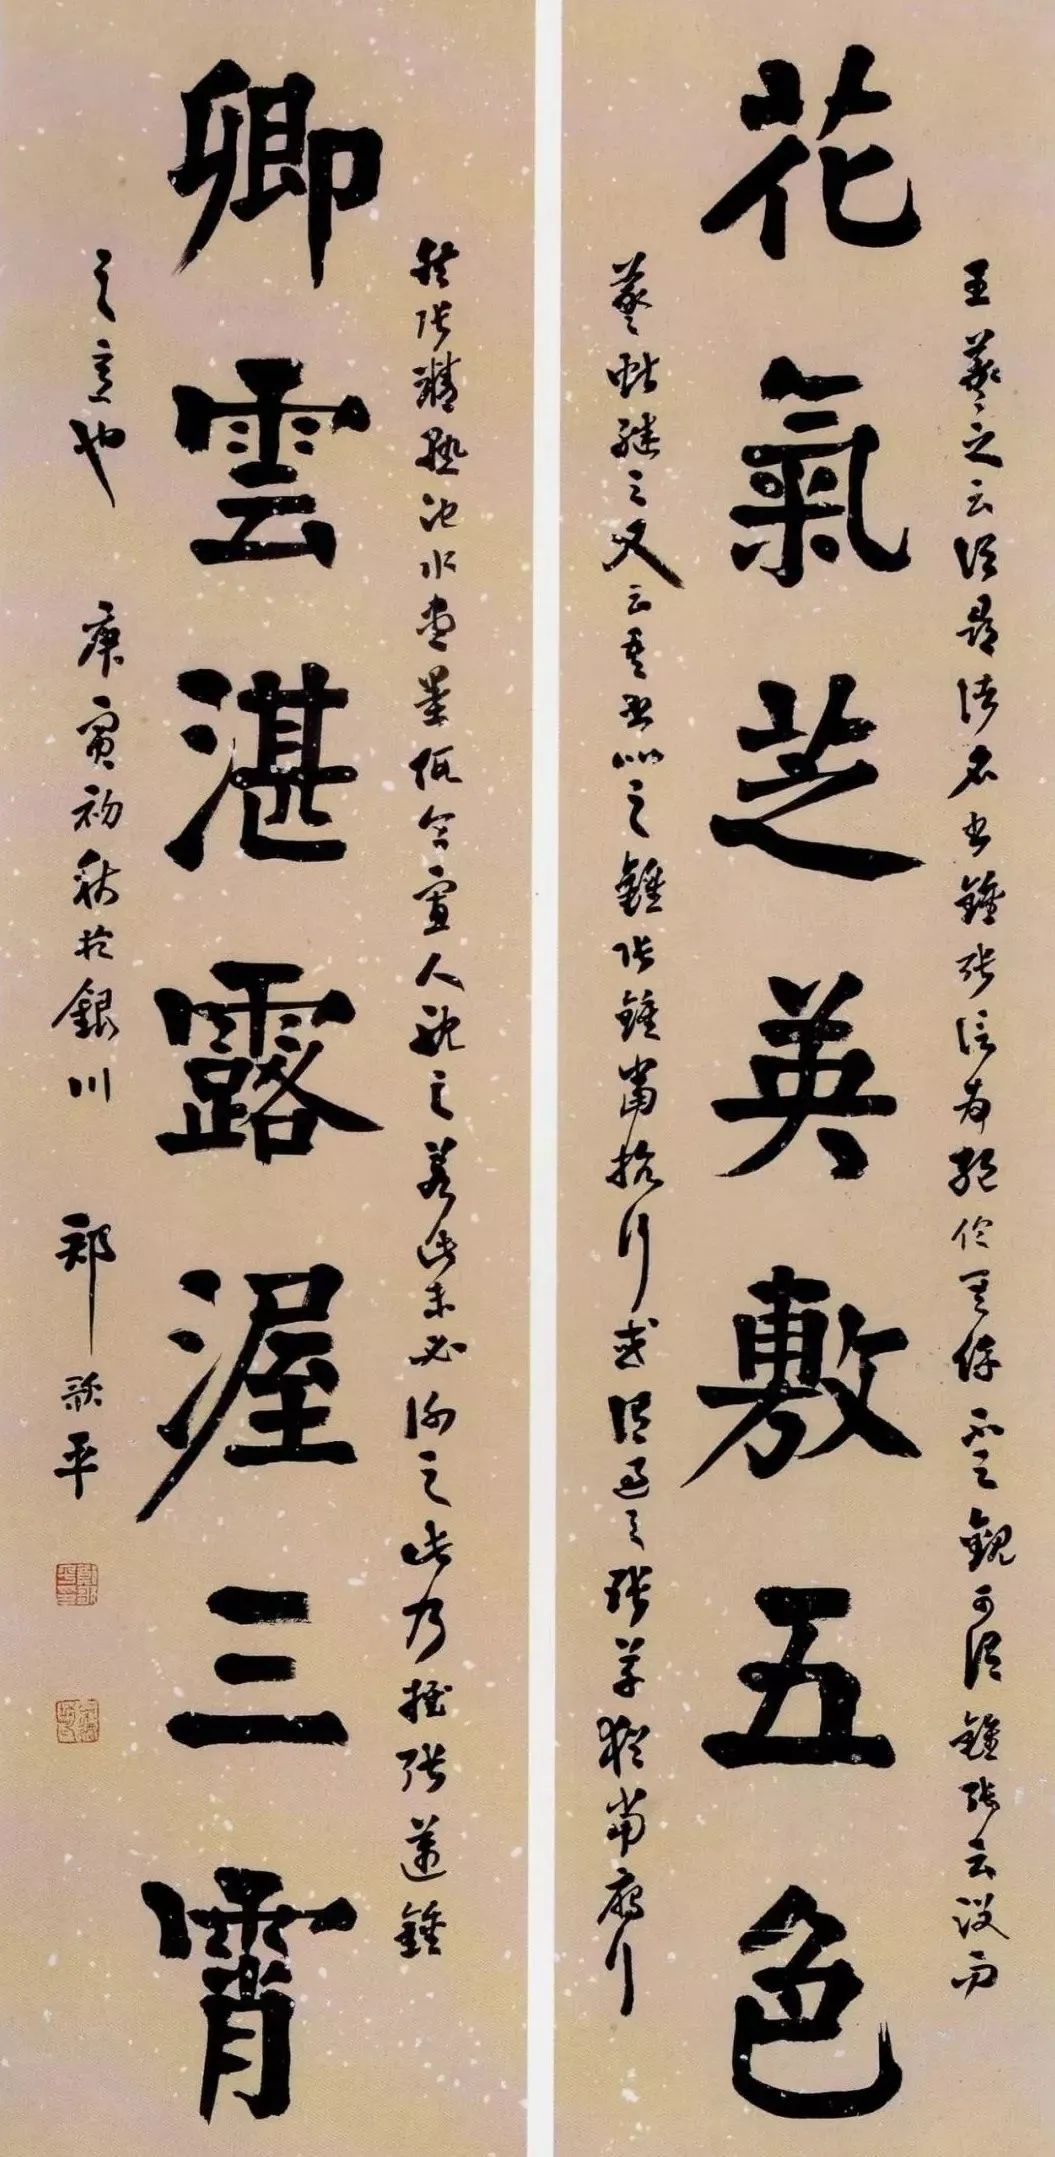 花氣芝英敷五色
卿雲湛露渥三霄
王羲之云頃尋諸名書鍾張信為絕倫其餘不足觀可謂鍾張云沒而
羲獻繼之又云吾書比之鍾張鍾當抗行或謂過之張草猶當雁行
然張精熟池水盡墨假令寡人耽之若此未必謝之此乃推張邁鍾
之意也 庚寅初秋於銀川 郑歌平